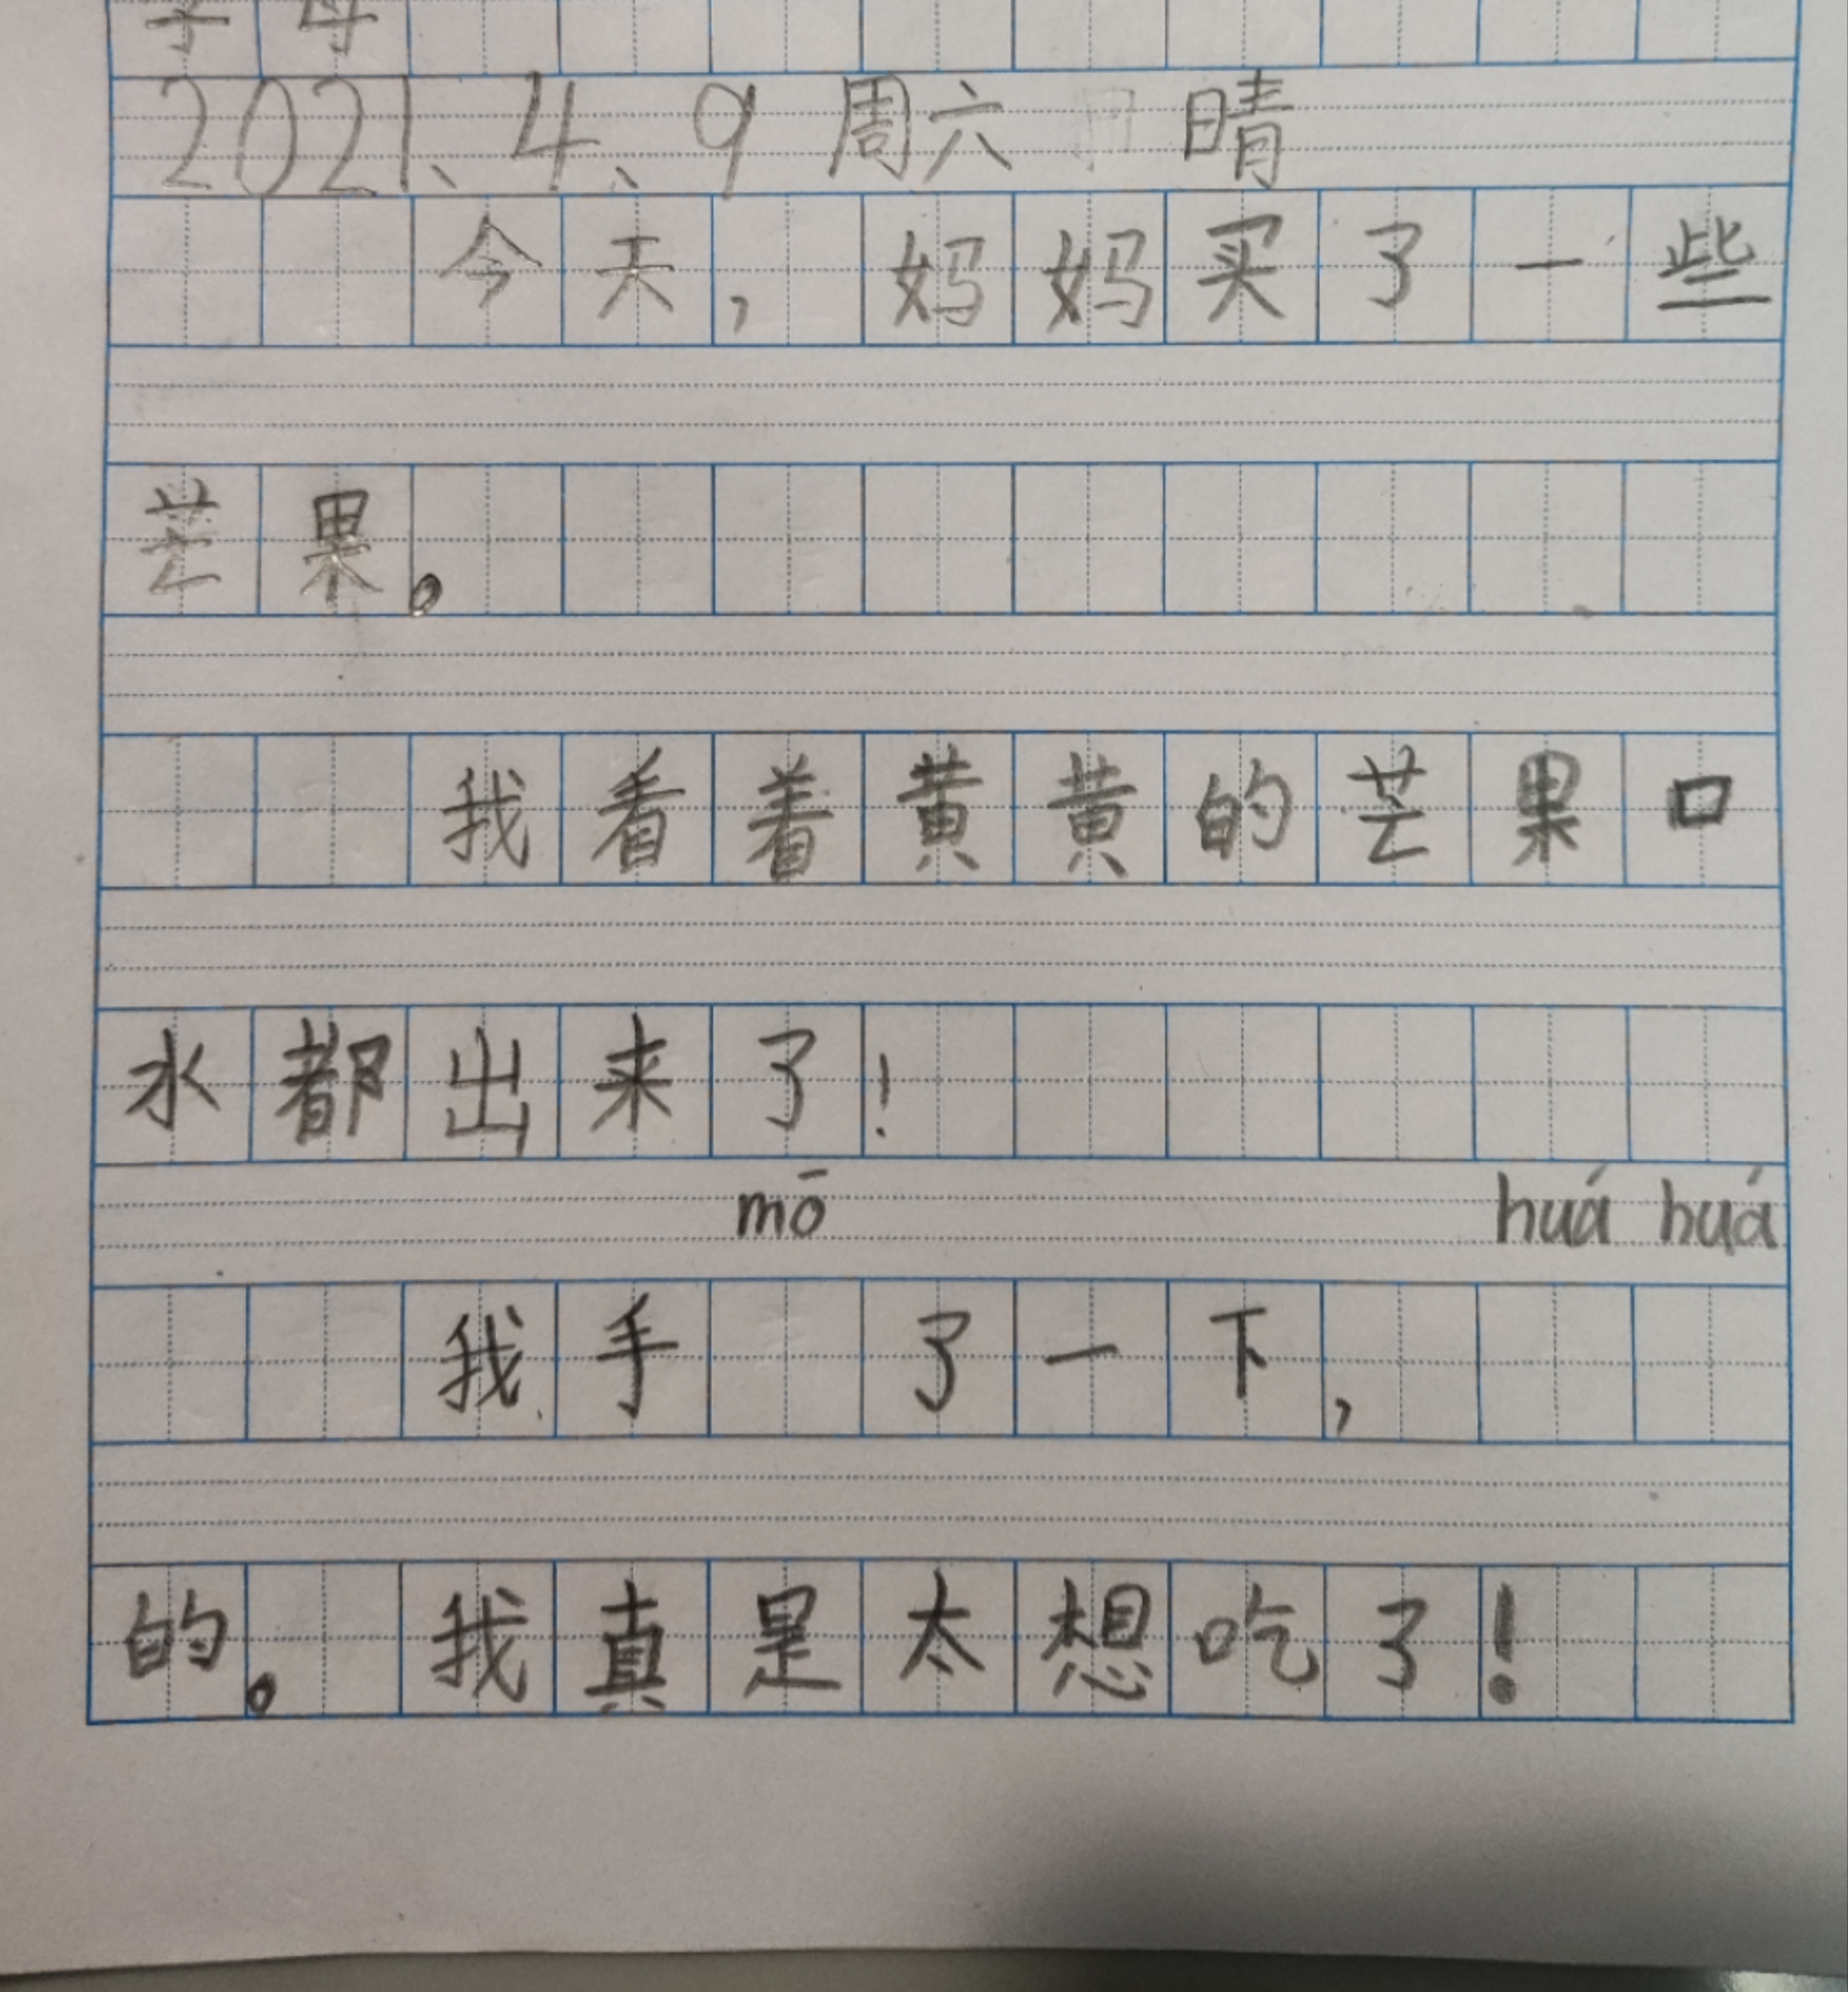 2021、4、9 周六 晴
今天，妈妈买了一些
芒果。
我看着黄黄的芒果口
水都出来了！
mō huá huá
我手 了一下，
的。我真是太想吃了！